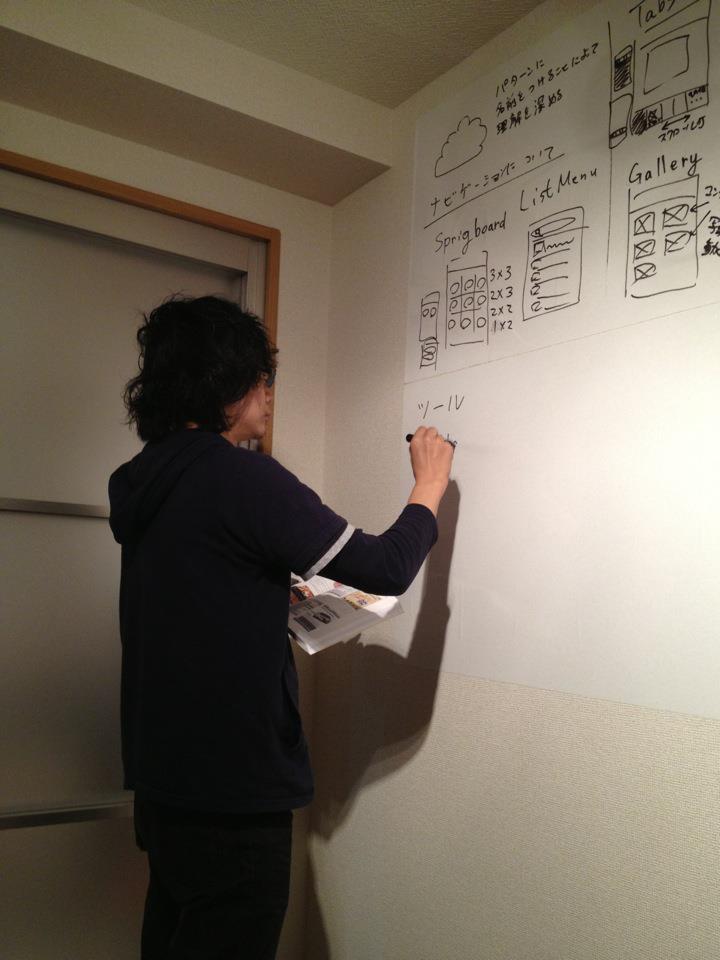 パターンに
名前をつけることによて
理解を深める
ナビゲーションについて
Sprigboard
3×3
2×3
2×2
1×2
List Menu
Tabs
スクロール
Gallery
ツール